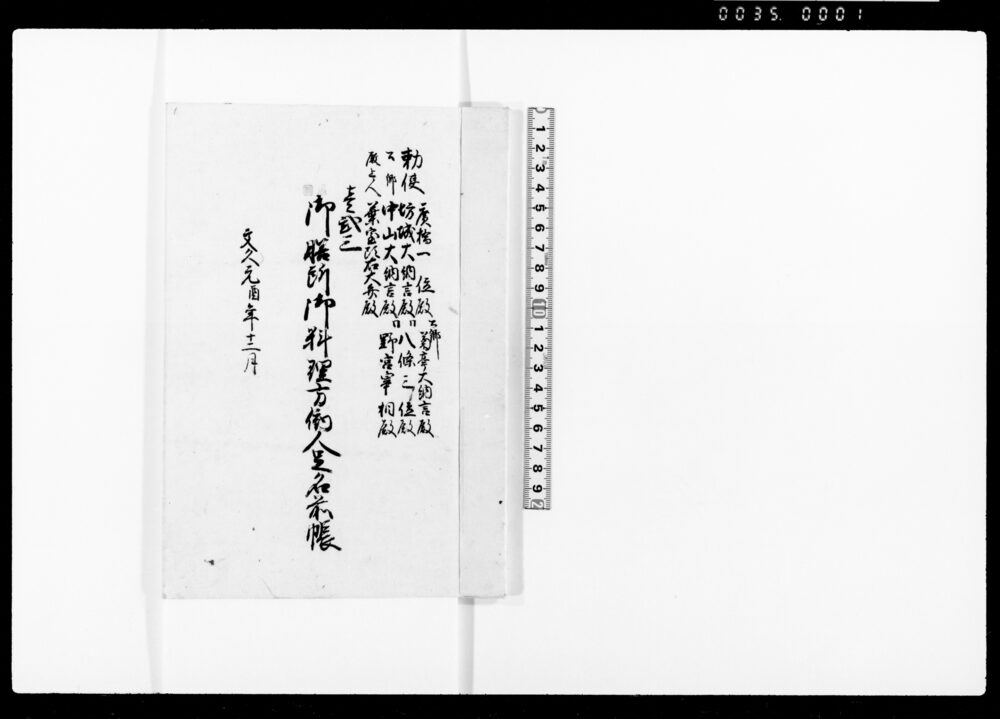 0035. 0001
勅使 廣橋一位殿 公卿 菊亭大納言殿
坊城大納言殿 〃 八條三位殿
公卿 中山大納言殿 〃 野宮宰相殿
殿上人 葉室頭右大弁殿
壱弐三
御膳所御料理方働人足名前帳
文久元酉年十二月
1 2 3 4 5 6 7 8 9 10 1 2 3 4 5 6 7 8 9 2